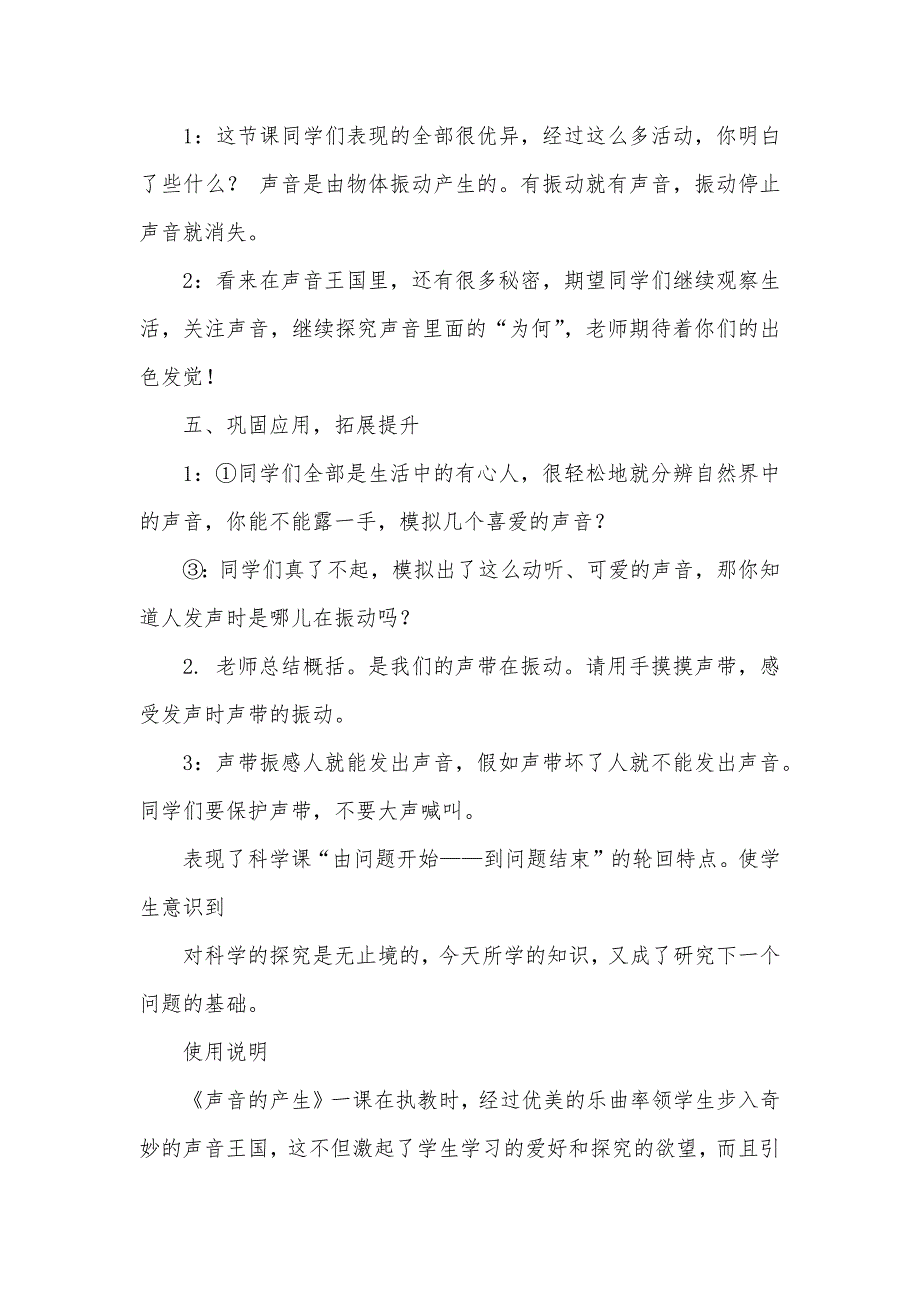 1：这节课同学们表现的全部很优异，经过这么多活动，你明白
了些什么？ 声音是由物体振动产生的。有振动就有声音，振动停止
声音就消失。
2：看来在声音王国里，还有很多秘密，期望同学们继续观察生
活，关注声音，继续探究声音里面的“为何”，老师期待着你们的出
色发觉！
五、巩固应用，拓展提升
1：①同学们全部是生活中的有心人，很轻松地就分辨自然界中
的声音，你能不能露一手，模拟几个喜爱的声音？
③：同学们真了不起，模拟出了这么动听、可爱的声音，那你知
道人发声时是哪儿在振动吗？
2. 老师总结概括。是我们的声带在振动。请用手摸摸声带，感
受发声时声带的振动。
3：声带振感人就能发出声音，假如声带坏了人就不能发出声音。
同学们要保护声带，不要大声喊叫。
表现了科学课“由问题开始——到问题结束”的轮回特点。使学
生意识到
对科学的探究是无止境的，今天所学的知识，又成了研究下一个
问题的基础。
使用说明
《声音的产生》一课在执教时，经过优美的乐曲率领学生步入奇
妙的声音王国，这不但激起了学生学习的爱好和探究的欲望，而且引